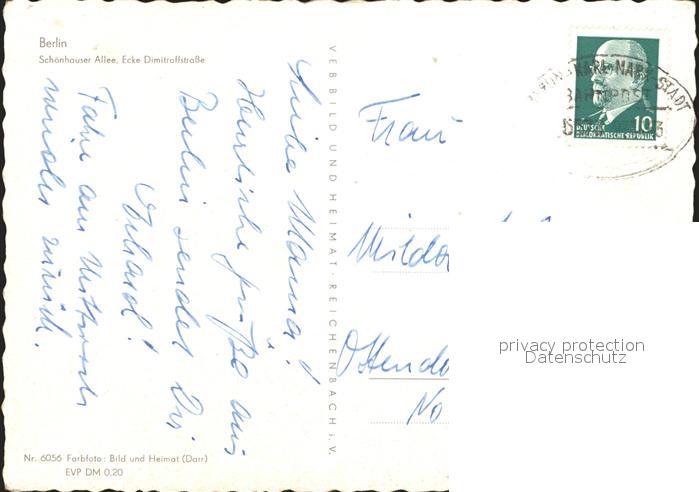 Berlin
Schönhauser Allee, Ecke Dimitroffstraße
Liebe Mama!
Herzliche Grüße aus
Berlin sendet Dir
Eckard!
Fahre am Mittwoch
wieder zurück.
VEB BILD UND HEIMAT · REICHENBACH i. V.
Nr. 6056 Farbfoto: Bild und Heimat (Darr)
EVP DM 0,20
KARL-MARX-STADT
BAHNPOST
10
DEUTSCHE
DEMOKRATISCHE REPUBLIK
Frau
privacy protection
Datenschutz